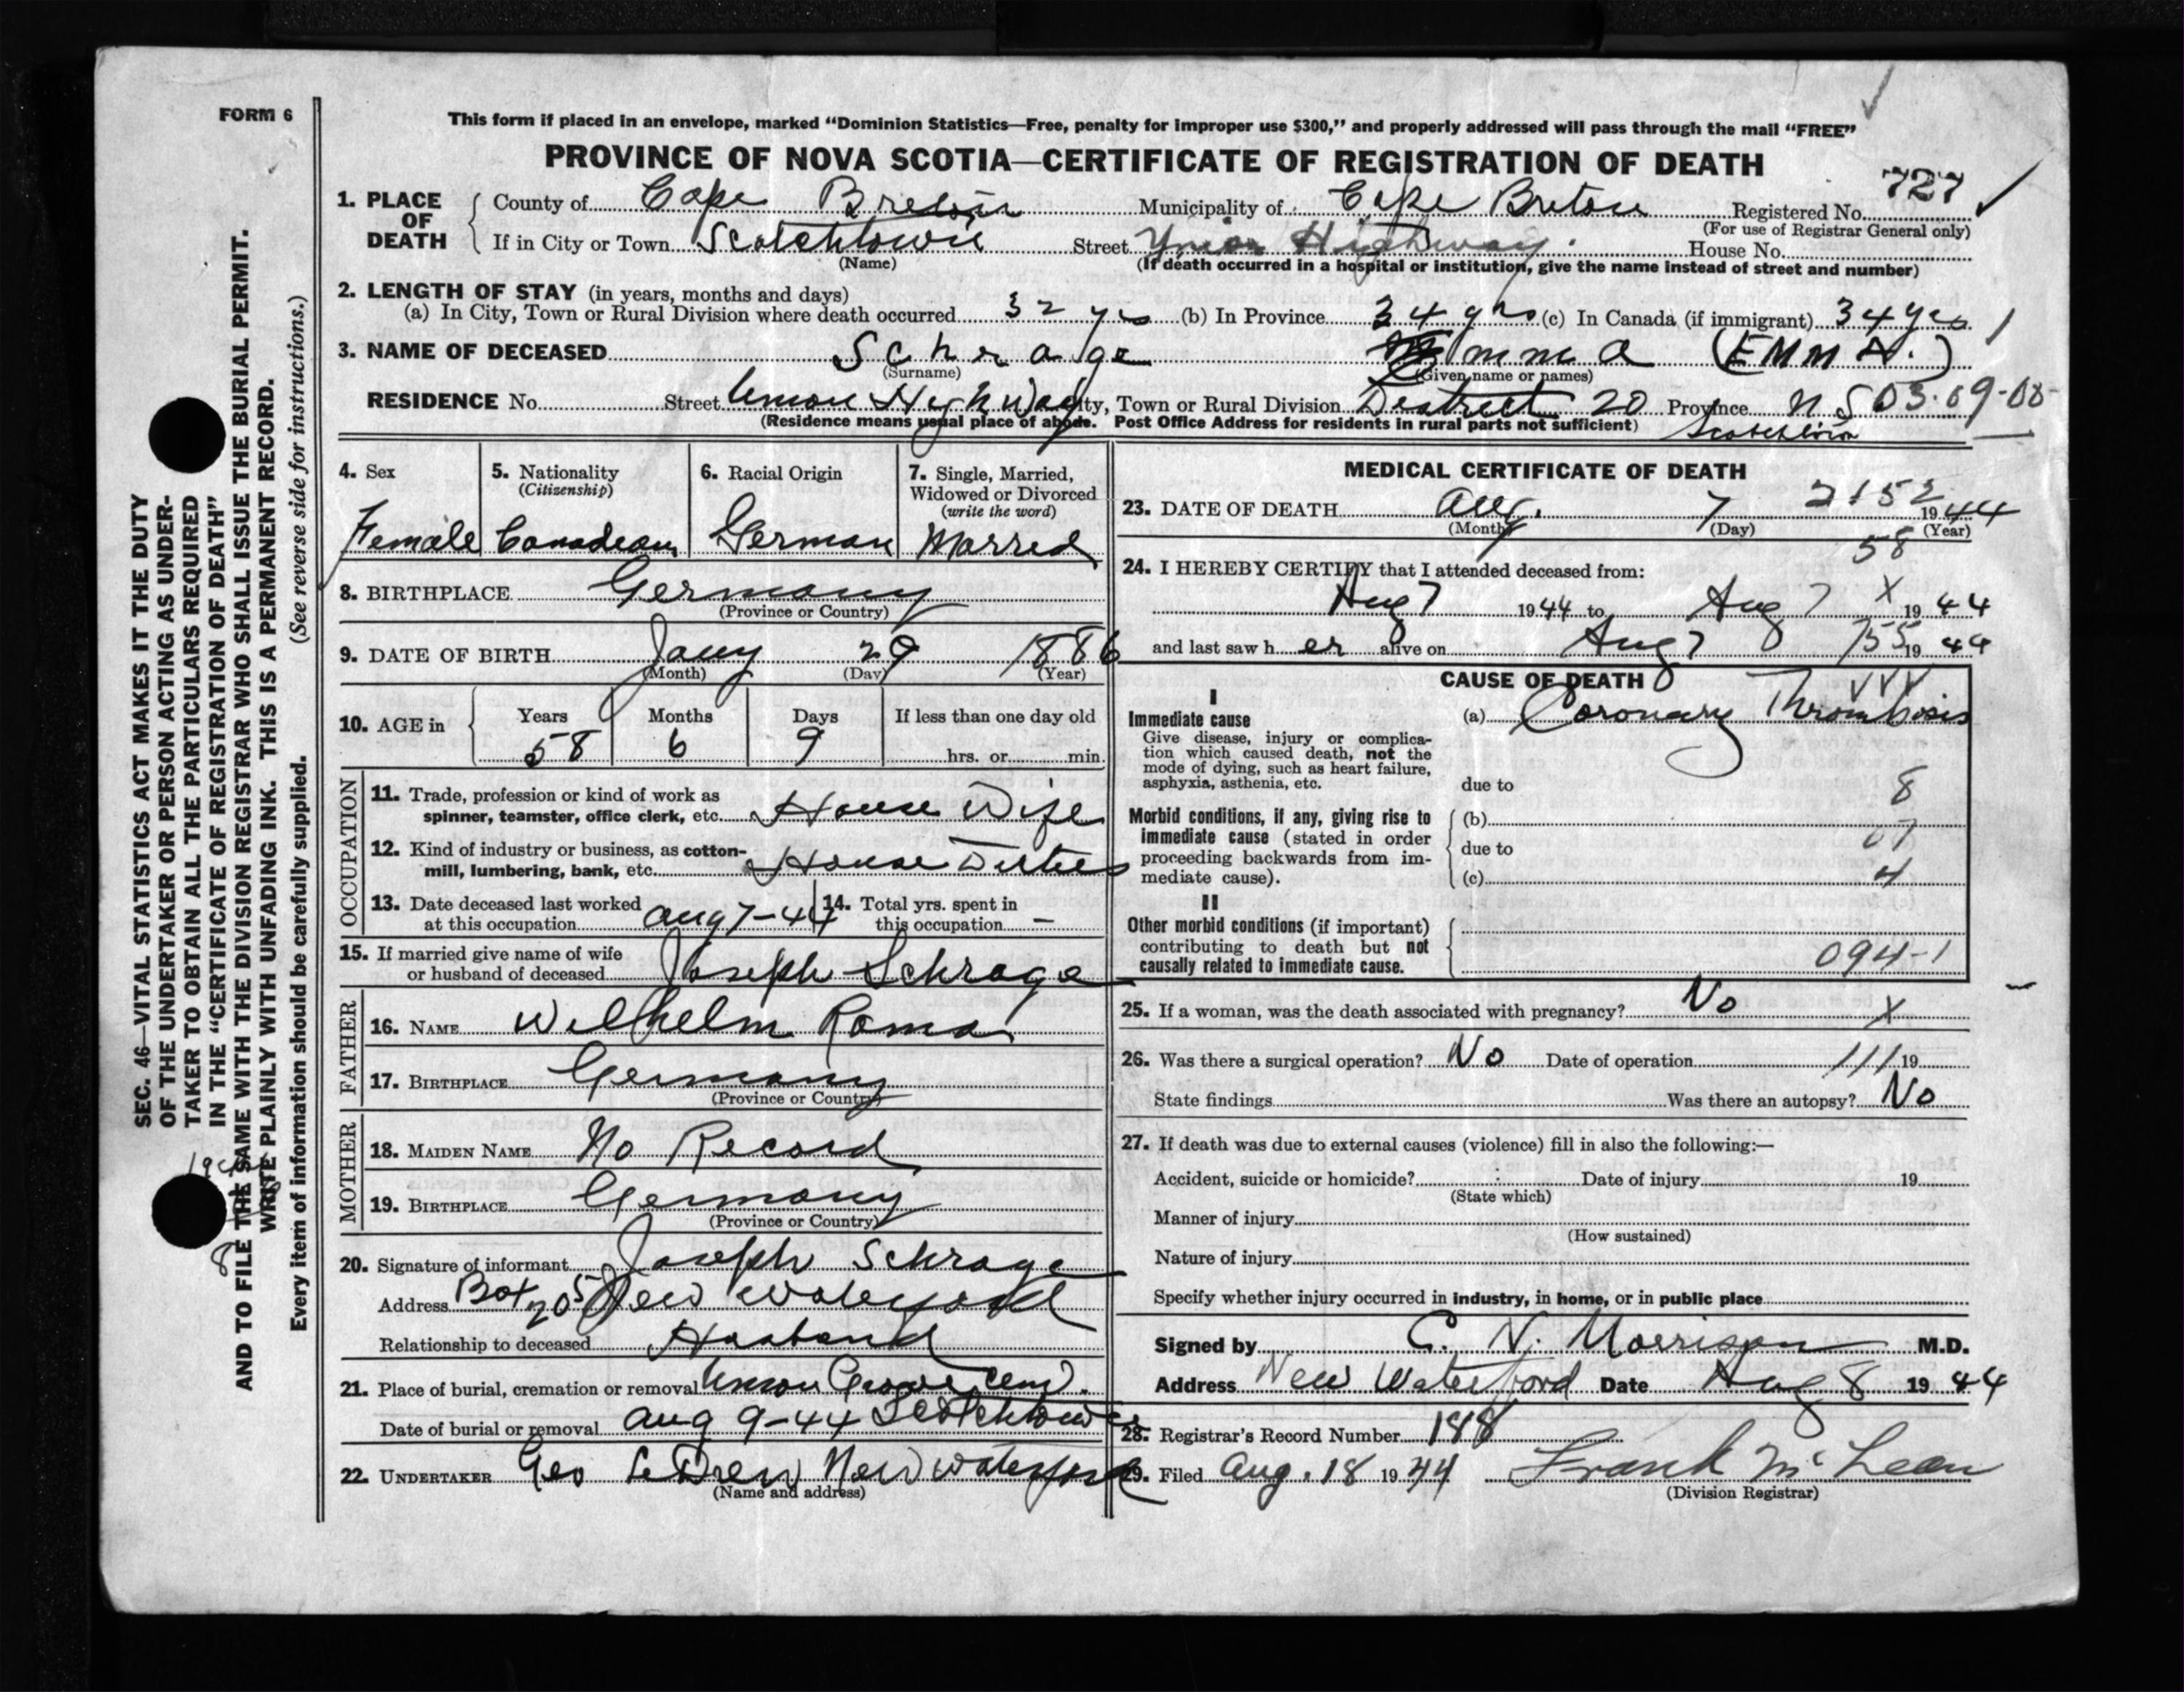 FORM 6
This form if placed in an envelope, marked "Dominion Statistics—Free, penalty for improper use $300," and properly addressed will pass through the mail "FREE"
PROVINCE OF NOVA SCOTIA—CERTIFICATE OF REGISTRATION OF DEATH
727
1. PLACE OF DEATH County of Cape Breton Municipality of Cape Breton Registered No.
(For use of Registrar General only)
If in City or Town Scotchtown Street Union Highway. House No.
(Name) (If death occurred in a hospital or institution, give the name instead of street and number)
2. LENGTH OF STAY (in years, months and days)
(a) In City, Town or Rural Division where death occurred 32 yrs (b) In Province 34 yrs (c) In Canada (if immigrant) 34 yrs 1
3. NAME OF DECEASED Schrage Emma (EMMA.)
(Surname) (Given name or names)
RESIDENCE No. Street Union High Way City, Town or Rural Division District 20 Province N S 03-09-08-
(Residence means usual place of abode. Post Office Address for residents in rural parts not sufficient) Scotchtown
4. Sex 5. Nationality (Citizenship) 6. Racial Origin 7. Single, Married, Widowed or Divorced (write the word)
Female Canadean German Marred
8. BIRTHPLACE Germany
(Province or Country)
9. DATE OF BIRTH Jany 29 1886
(Month) (Day) (Year)
10. AGE in Years Months Days If less than one day old
58 6 9 hrs. or min.
OCCUPATION
11. Trade, profession or kind of work as
spinner, teamster, office clerk, etc. House Wife
12. Kind of industry or business, as cotton-
mill, lumbering, bank, etc. House Duties
13. Date deceased last worked
at this occupation Aug 7-44
14. Total yrs. spent in
this occupation —
15. If married give name of wife
or husband of deceased Joseph Schrage
FATHER
16. NAME Wilhelm Roma
17. BIRTHPLACE Germany
(Province or Country)
MOTHER
18. MAIDEN NAME No Record
19. BIRTHPLACE Germany
(Province or Country)
20. Signature of informant Joseph Schrage
Address Box 205 New Waterford
Relationship to deceased Husband
21. Place of burial, cremation or removal Union Grove Cem.
Date of burial or removal Aug 9-44 Scotchtown
22. UNDERTAKER Geo LeDrew New Waterford
(Name and address)
MEDICAL CERTIFICATE OF DEATH
2152
23. DATE OF DEATH Aug. 7 1944
(Month) (Day) (Year)
58
24. I HEREBY CERTIFY that I attended deceased from:
Aug 7 1944 to Aug 7 X 1944
and last saw her alive on Aug 7 1944
CAUSE OF DEATH
I
Immediate cause (a) Coronary Thrombosis
Give disease, injury or complica-
tion which caused death, not the
mode of dying, such as heart failure,
asphyxia, asthenia, etc.
due to 8
Morbid conditions, if any, giving rise to
immediate cause (stated in order
proceeding backwards from im-
mediate cause).
(b)
due to 07
(c) 4
II
Other morbid conditions (if important)
contributing to death but not
causally related to immediate cause.
094-1
25. If a woman, was the death associated with pregnancy? No X
26. Was there a surgical operation? No Date of operation 111 19
State findings Was there an autopsy? No
27. If death was due to external causes (violence) fill in also the following:—
Accident, suicide or homicide? Date of injury 19
(State which)
Manner of injury
(How sustained)
Nature of injury
Specify whether injury occurred in industry, in home, or in public place
Signed by C. N. Morrison M.D.
Address New Waterford Date Aug 8 1944
28. Registrar's Record Number 188
29. Filed Aug. 18 1944 Frank McLean
(Division Registrar)
SEC. 46—VITAL STATISTICS ACT MAKES IT THE DUTY
OF THE UNDERTAKER OR PERSON ACTING AS UNDER-
TAKER TO OBTAIN ALL THE PARTICULARS REQUIRED
IN THE "CERTIFICATE OF REGISTRATION OF DEATH"
AND TO FILE THE SAME WITH THE DIVISION REGISTRAR WHO SHALL ISSUE THE BURIAL PERMIT.
WRITE PLAINLY WITH UNFADING INK. THIS IS A PERMANENT RECORD.
Every item of information should be carefully supplied. (See reverse side for instructions.)